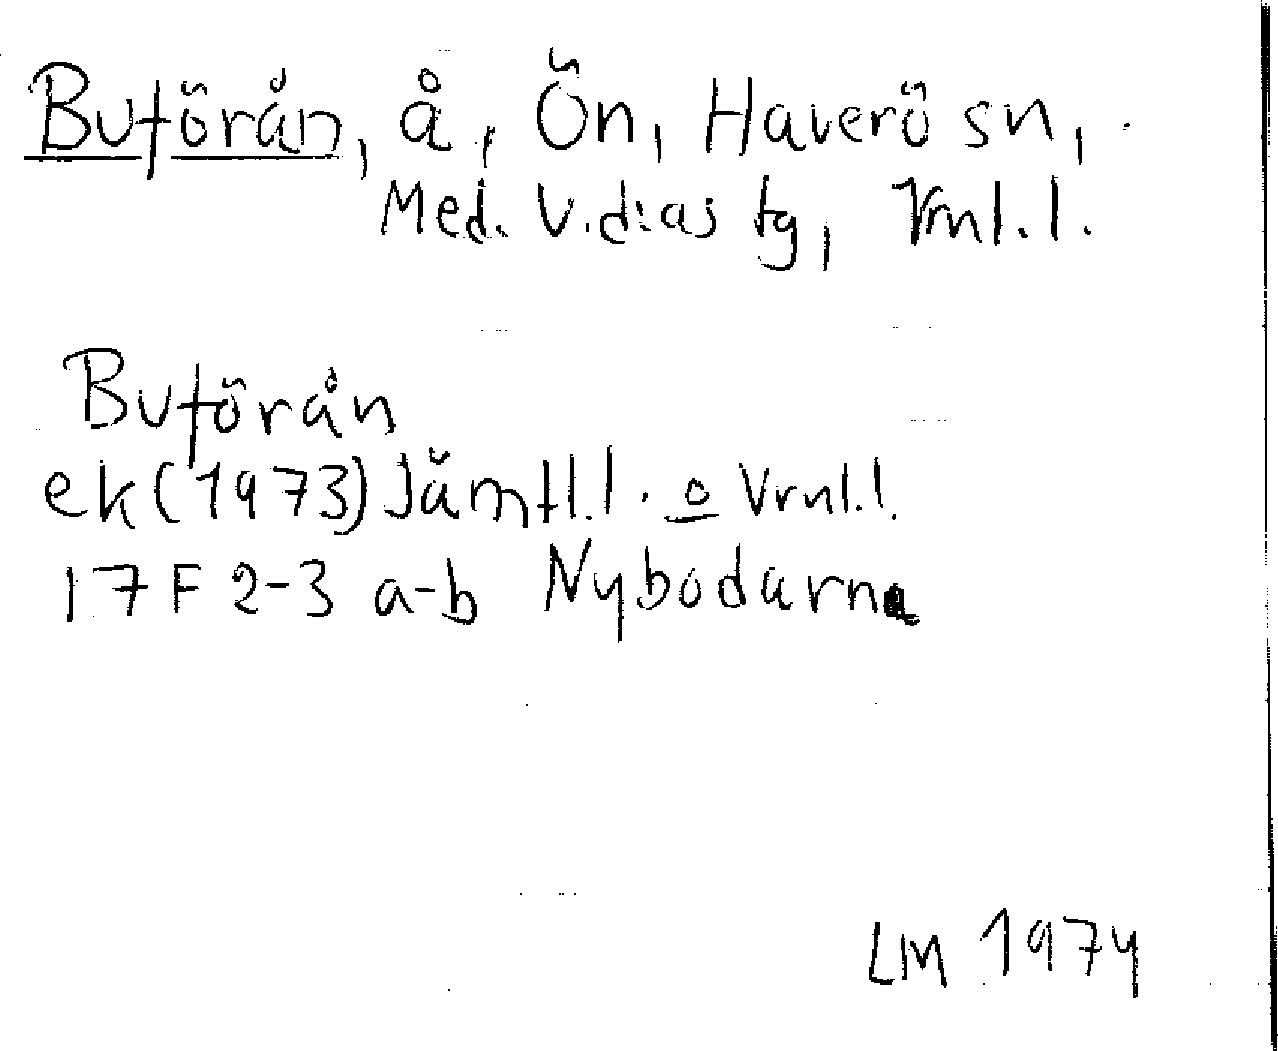 Buförån, å, Ön, Haverö sn,
Med. V.d:as tg, Vrnl.l.
Buförån
ek (1973) Jämtl.l. o Vrnl.l.
17F 2-3 a-b Nybodarna
LM 1974